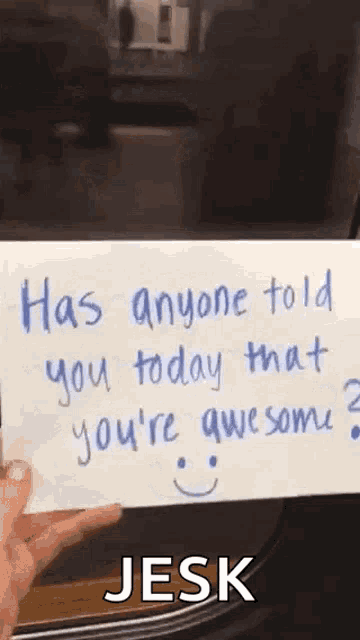 Has anyone told
you today that
you're awesome?
JESK